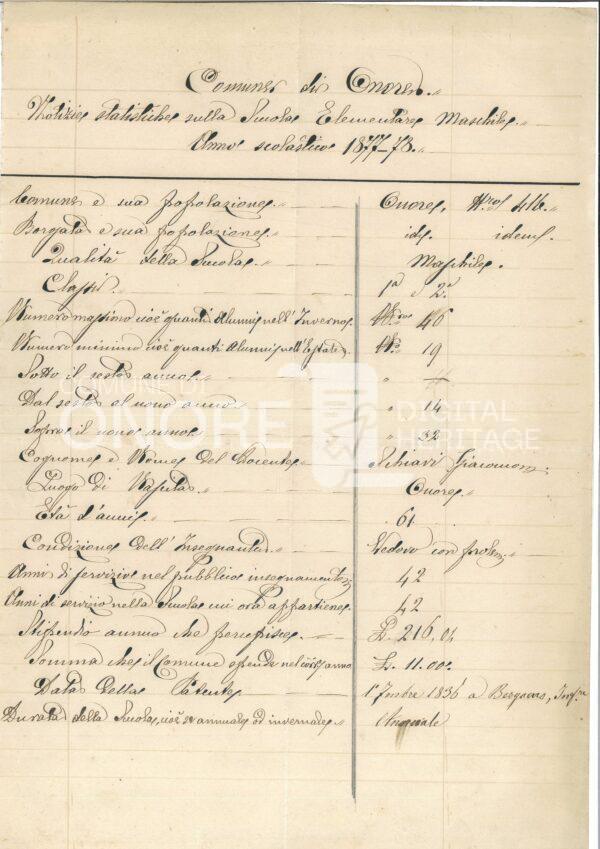 Comune di Onore.
Notizie statistiche sulla Scuola Elementare Maschile.
Anno scolastico 1877-78.
Comune e sua popolazione. Onore, 416.
Borgata e sua popolazione. id. idem.
Qualità della Scuola. Maschile.
Classi 1a e 2a
Numero massimo cioè quanti Alunni nell'Inverno. 46
Numero minimo cioè quanti Alunni nell'Estate. 19
Sotto il sesto anno "
Dal sesto al nono anno " 14
Sopra il nono anno " 32
Cognome e Nome del Docente Schiavi Giacomo
Luogo di Nascita Onore
Età d'anni 61
Condizione dell'Insegnante Vedovo con prole
Anni di servizio nel pubblico insegnamento 42
Anni di servizio nella Scuola cui ora appartiene 42
Stipendio annuo che percepisce L. 216,01
Somma che il Comune spende nel corso anno L. 11.00
Data della Patente 1836 a Bergamo,
Durata della Scuola, cioè se annuale od invernale Annuale
COMUNE DI
ONORE
DIGITAL
HERITAGE